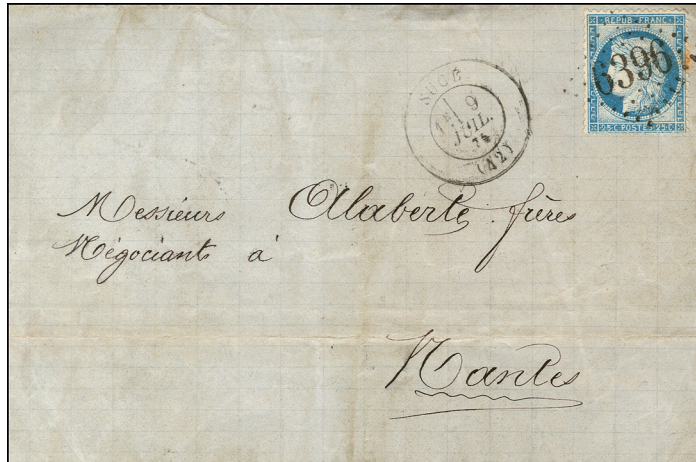 REPUB. FRANC.
6396
25 C. POSTES 25 C.
SUCÉ
1E
9
JUIL.
74
(42)
Messieurs Alaberte frères
Négociants à
Nantes